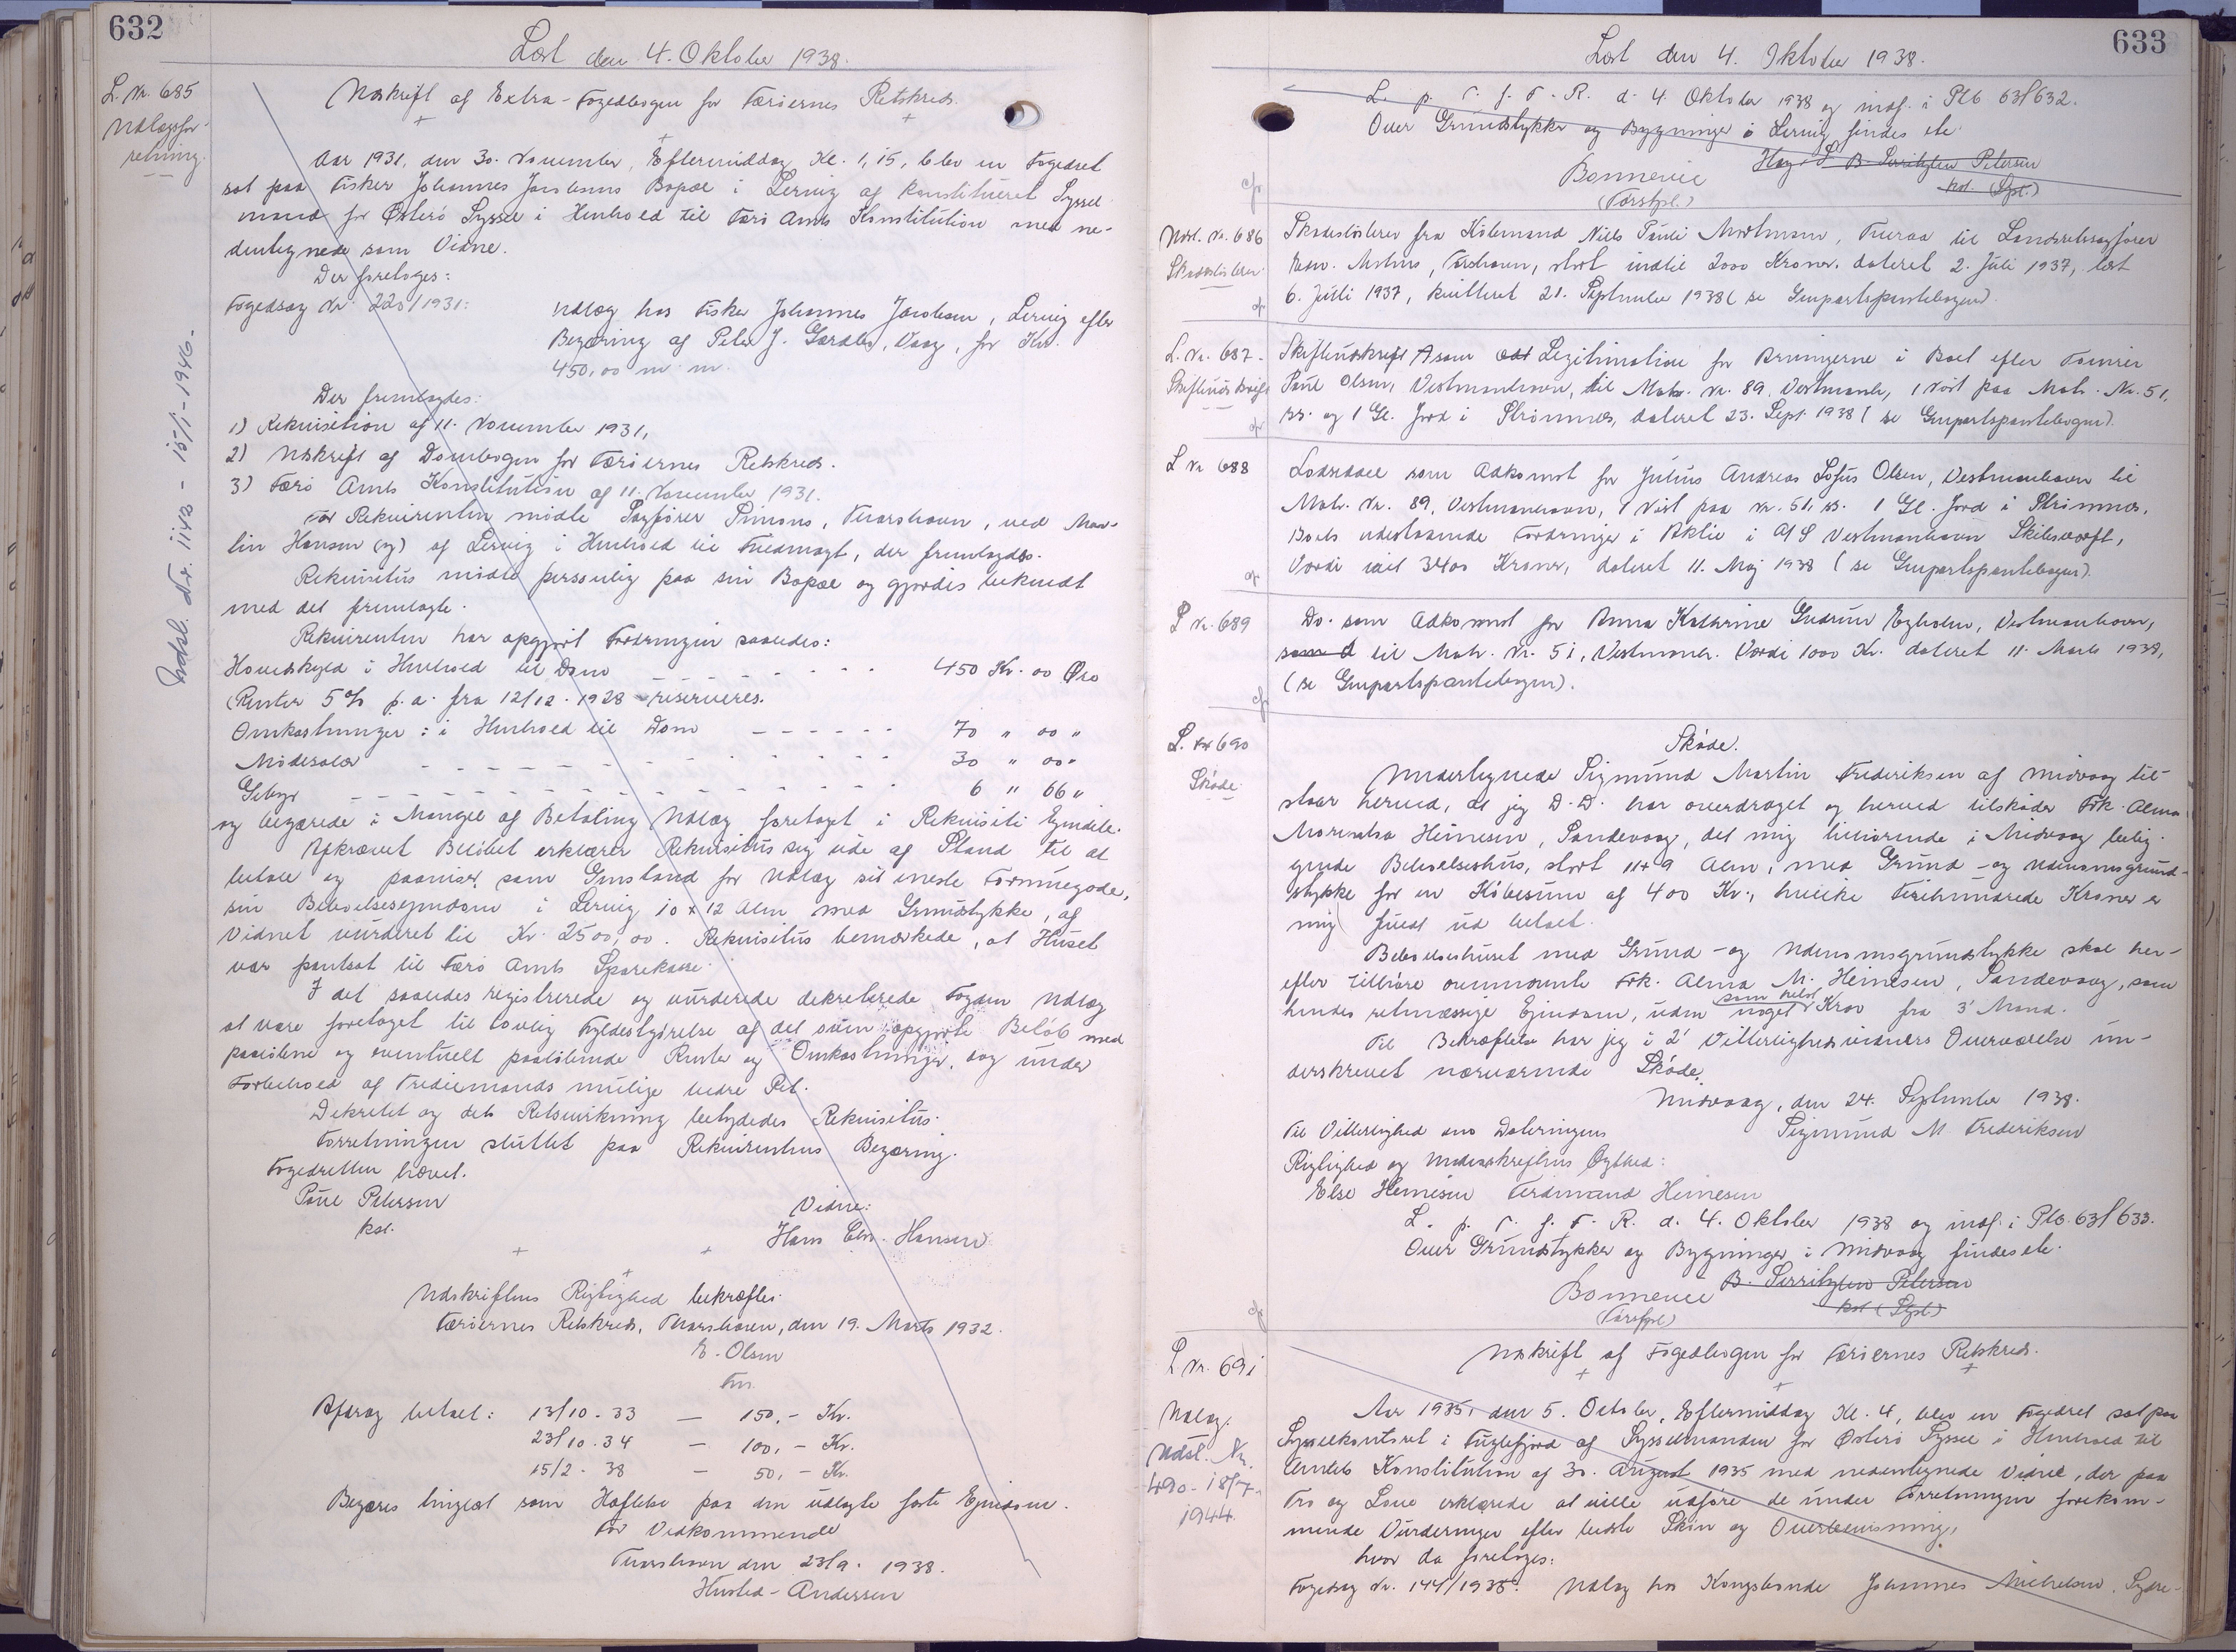 632
Læst den 4. Oktober 1938.
L. Nr. 685
Udlægsfor-
retning.
Udskrift af Extra-Fogedbogen for Færøernes Retskreds.
Aar 1931, den 30. November, Eftermiddag Kl. 1,15, blev en Fogedret
sat paa Fisker Johannes Jacobsens Bopæl i Lervig af konstitueret Syssel-
mand for Østerø Syssel i Henhold til Færø Amts Konstitution med ne-
dentegnede som Vidne.
Der foretoges:
Fogedsag Nr. 220/1931:
Udlæg hos Fisker Johannes Jacobsen, Lervig efter
Begæring af Peter J. Gærdbo, Vaag, for Kr.
450,00 m. m.
Der fremlagdes:
1) Rekvisition af 11. November 1931,
2) Udskrift af Dombogen for Færøernes Retskreds.
3) Færø Amts Konstitution af 11. November 1931.
For Rekvirenten mødte Sagfører Simons, Thorshavn, ved Mar-
tin Hansen (ng) af Lervig i Henhold til Fuldmagt, der fremlagdes.
Rekvisitus mødte personlig paa sin Bopæl og gjordes bekendt
med det fremlagte.
Rekvirenten har opgjort Fordringen saaledes:
Hovedskyld i Henhold til Dom - - - - 450 Kr. 00 Øre
(Renter 5% p. a. fra 12/12. 1928 reserveres.
Omkostninger: i Henhold til Dom - - - - - - 70 " 00 "
Mødesalær - - - - - - - - - - - 30 " 00 "
Gebyr - - - - - - - - - - - - 6 " 66 "
og begærede i Mangel af Betaling Udlæg foretaget i Rekvisiti Ejendele.
Afkrævet Beløbet erklærer Rekvisitus sig ude af Stand til at
betale og paaviser som Genstand for Udlæg sit eneste Formuegode,
sin Beboelsesejendom i Lervig 10 x 12 Alen med Grundstykke, af
Vidnet vurderet til Kr. 2500,00. Rekvisitus bemærkede, at Huset
var pantsat til Færø Amts Sparekasse.
I det saaledes registrerede og vurderede dekreterede Fogden Udlæg
at være foretaget til lovlig Fyldestgørelse af det oven opgjorte Beløb med
paaløbne og eventuelt paaløbende Renter og Omkostninger, dog under
Forbehold af Trediemands mulige bedre Ret.
Dekretet og dets Retsvirkning betydedes Rekvisitus.
Forretningen sluttet paa Rekvirentens Begæring.
Fogedretten hævet.
Poul Petersen
kst.
Vidne:
Hans Chr. Hansen
Udskriftens Rigtighed bekræftes.
Færøernes Retskreds, Thorshavn, den 19. Marts 1932.
E. Olsen
Fm.
Afdrag betalt: 13/10 - 33 — 150,- Kr.
23/10. 34 — 100,- Kr.
15/2 - 38 — 50,- Kr.
Begæres tinglæst som Hæftelse paa den udlagte faste Ejendom.
For Vedkommende
Thorshavn den 23/9. 1938.
Husted-Andersen
Udsl. Nr. 1142 - 15/1 - 1946.
633
Læst den 4. Oktober 1938.
L. p. T. f. F. R. d. 4. Oktober 1938 og indf. i Plb 63f632.
Over Grundstykker og Bygninger i Lervig findes ete.
Bonnevie
(Færøfgl.)
B. Serritzlew Petersen
kst. (Spl.)
Udsl. Nr. 686
Skadesløsbrev
Skadesløsbrev fra Købmand Niels Pauli Mortensen, Tveraa til Landsretssagfører
Edw. Mitens, Tórshavn, stort indtil 2000 Kroner, dateret 2. Juli 1937, læst
6. Juli 1937, kvitteret 21. September 1938 (se Genpartspantebogen).
L. Nr. 687
Skifteudskrift
Skifteudskrift som Legitimation for Arvingerne i Boet efter
Poul Olsen, Vestmanhavn, til Matr. Nr. 89. Vestmanh, 1 Vist paa Matr. Nr. 51,
ss. og 1 Gl. Jord i Strømnes, dateret 23. Sept. 1938 (se Genpartspantebogen).
L Nr. 688
Lodseddel som Adkomst for Julius Andreas Sofus Olsen, Vestmanhavn til
Matr. Nr. 89, Vestmanhavn, 1 Vist paa Nr. 51, ss. 1 Gl. Jord i Strømnes,
Boets udestaaende Fordringer i Aktie i A/S Vestmanhavn Skibsværft,
Værdi ialt 3400 Kroner, dateret 11. Maj 1938 (se Genpartspantebogen).
L Nr. 689
Do. som Adkomst for Anna Kathrine Gudrun Egholm, Vestmanhavn,
til Matr. Nr. 51, Vestmanh. Værdi 1000 Kr. dateret 11. Marts 1938,
(se Genpartspantebogen).
L. Nr 690
Skøde.
Skøde.
Undertegnede Sigmund Martin Frederiksen af Midvaag til-
staar herved, at jeg D. D. har overdraget og herved tilskøder Frk. Alma
Heinesen, Sandevaag, det mig tilhørende i Midvaag belig-
gende Beboelseshus, stort 11 x 9 Alen, med Grund- og Udenomsgrund-
stykke for en Købesum af 400 Kr., hvilke Firehundrede Kroner er
mig fuldt ud betalt.
Beboelseshuset med Grund- og Udenomsgrundstykke skal her-
efter tilhøre ovennævnte Frk. Alma M. Heinesen, Sandevaag, som
hendes retmæssige Ejendom, uden noget som helst Krav fra 3' Mand.
Til Bekræftelse har jeg i 2' Vitterlighedsvidners Overværelse un-
derskrevet nærværende Skøde.
Midvaag, den 24. September 1938.
Sigmund M. Frederiksen
Til Vitterlighed om Dateringens
Rigtighed og Underskriftens Ægthed:
Else Heinesen Ferdinand Heinesen
L. p. T. f. F. R. d. 4. Oktober 1938 og indf. i Plb. 63f633.
Over Grundstykker og Bygninger i Midvaag findes ete.
Bonnevie
(Færøfgl.)
B. Serritzlew Petersen
kst (Spl.)
L Nr. 691
Udlæg.
Udsl. Nr.
490 - 18/7 -
1944.
Udskrift af Fogedbogen for Færøernes Retskreds.
Aar 1935, den 5. October, Eftermiddag Kl. 4, blev en Fogedret sat paa
Sysselkontoret i Fuglefjord af Sysselmanden for Østerø Syssel i Henhold til
Amtets Konstitution af 30. August 1935 med nedentegnede Vidne, der paa
Tro og Love erklærede at ville udføre de under Forretningen forekom-
mende Vurderinger efter bedste Skøn og Overbevisning,
hvor da foretoges:
Fogedsag Nr. 144/1935. Udlæg hos Kongsbonde Johannes Michelsen, Sydre-